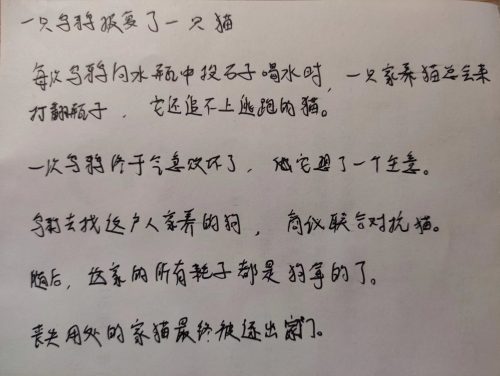 一只乌鸦报复了一只猫
每次乌鸦向水瓶中投石子喝水时，一只家养猫总会来
打翻瓶子，它还追不上逃跑的猫。
一次乌鸦终于气急败坏了，他它想了一个主意。
乌鸦去找这户人家养的狗，商议联合对抗猫。
随后，这家的所有耗子都是狗拿的了。
丧失用处的家猫最终被逐出家门。